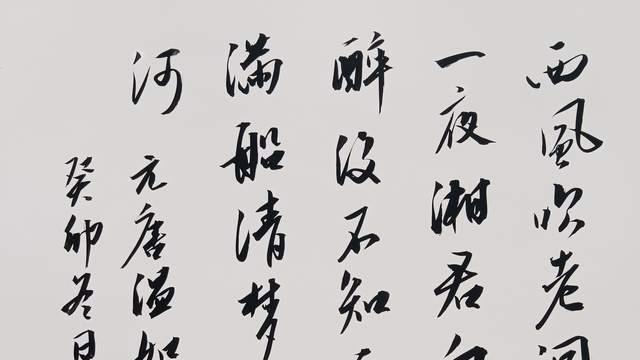 西風吹老洞
一夜湘君白
醉後不知
滿船清梦
河 元唐温如
癸卯冬月